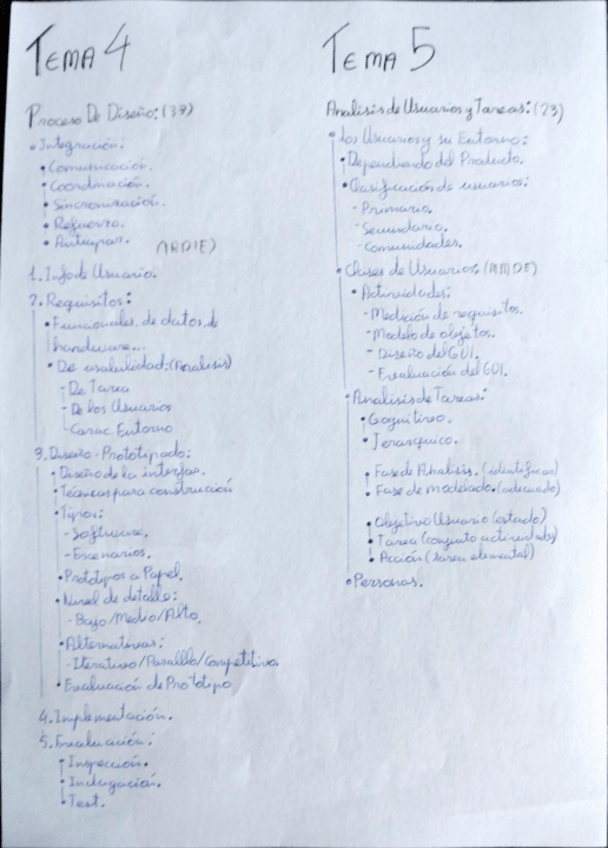 TEMA 4
Proceso De Diseño: (37)
Integración.
Comunicación.
Coordinación.
Sincronización.
Refuerzo.
Anticipar.
1. Info de Usuario.
2. Requisitos:
Funcionales, de datos, de
hardware...
De usabilidad: (Analisis)
- De Tarea
- De los Usuarios
- Carac. Entorno
3. Diseño - Prototipado:
Diseño de la interfaz.
Técnicas para construcción
Tipos:
- Software.
- Escenarios.
Prototipos a Papel.
Nivel de detalle:
- Bajo/Medio/Alto.
Alternativas:
- Iterativo/Paralelo/Competitivo.
Evaluación de Prototipo
4. Implementación.
5. Evaluación:
Inspección.
Indagación.
Test.
TEMA 5
Analisis de Usuarios y Tareas: (23)
Los Usuarios y su Entorno:
Dependiendo del Producto.
Clasificación de usuarios:
- Primario.
- Secundario.
- Comunidades.
Clases de Usuarios: (MMDE)
Actividades:
- Medición de requisitos.
- Modelo de objetos.
- Diseño del GUI.
- Evaluación del GUI.
Analisis de Tareas:
Cognitivo.
Jerarquico.
Fase de Analisis. (identificar)
Fase de modelado. (adecuado)
Objetivo Usuario (estado)
Tarea (conjunto actividades)
Acción (tarea elemental)
Personas.